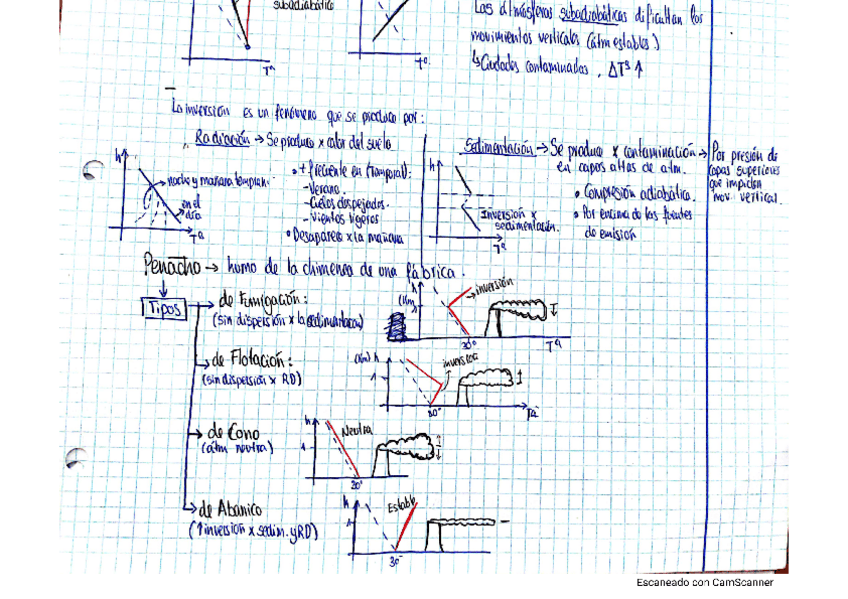 subadiabático
Las atmósferas subadiabáticas dificultan los
movimientos verticales (atm estables)
↳Ciudades contaminadas, ΔTª ↑
Tª
Tª
La inversión es un fenómeno que se produce por:
Radiación → Se produce x calor del suelo
h
noche y mañana tempran.
en el
día
Tª
• + frecuente en (temporal):
- Verano.
- Cielos despejados.
- Vientos ligeros
• Desaparece x la mañana
Sedimentación → Se produce x contaminación →
en capas altas de atm.
• Compresión adiabática.
• Por encima de las fuentes
de emisión
h
Inversión x
sedimentación.
Tª
Por presión de
capas superiores
que impiden
mov. vertical.
Penacho → humo de la chimenea de una fábrica.
Tipos
de Fumigación:
(sin dispersión x la sedimentación)
h
inversión
30°
Tª
de Flotación:
(sin dispersión x RD)
h
1
inversión
30°
Tª
de Cono
(atm neutra)
h
1
Neutra
30°
de Abanico
(↑inversión x sedim. y RD)
h
1
Estable
30°
Escaneado con CamScanner